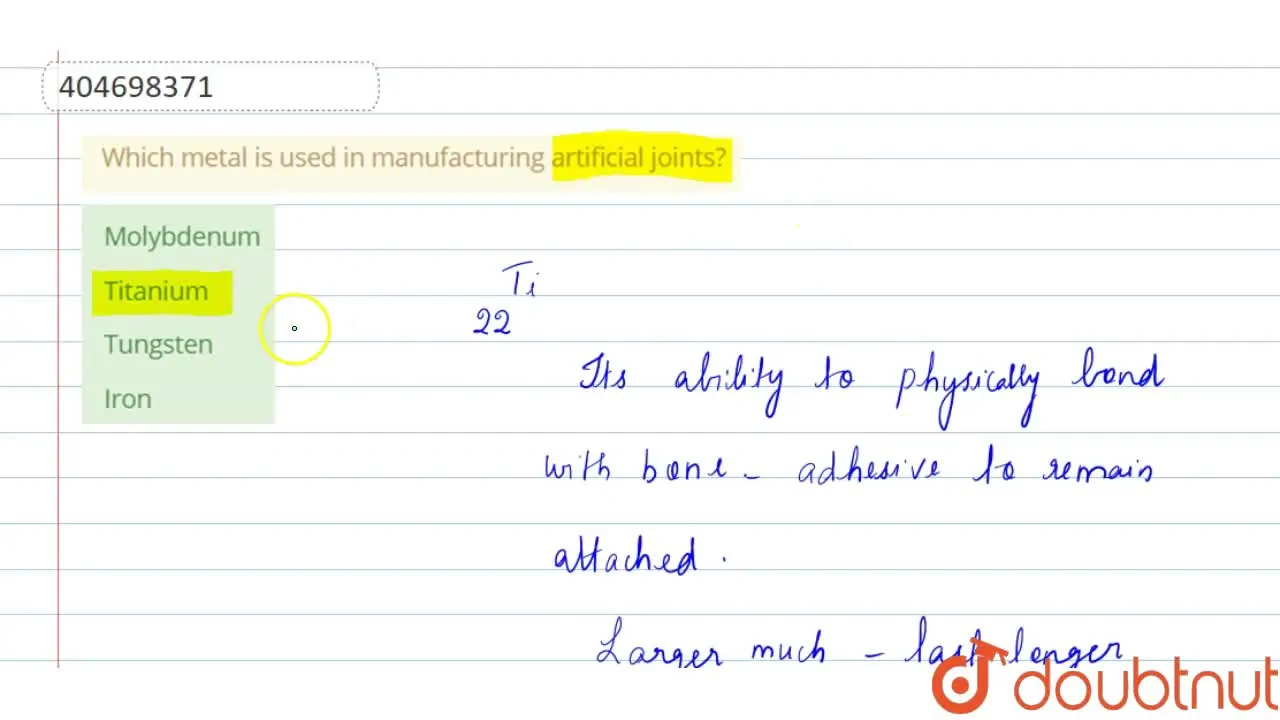 404698371
Which metal is used in manufacturing artificial joints?
Molybdenum
Titanium
Tungsten
Iron
Ti
22
Its ability to physically bond
with bone - adhesive to remain
attached.
Larger much - last longer
doubtnut